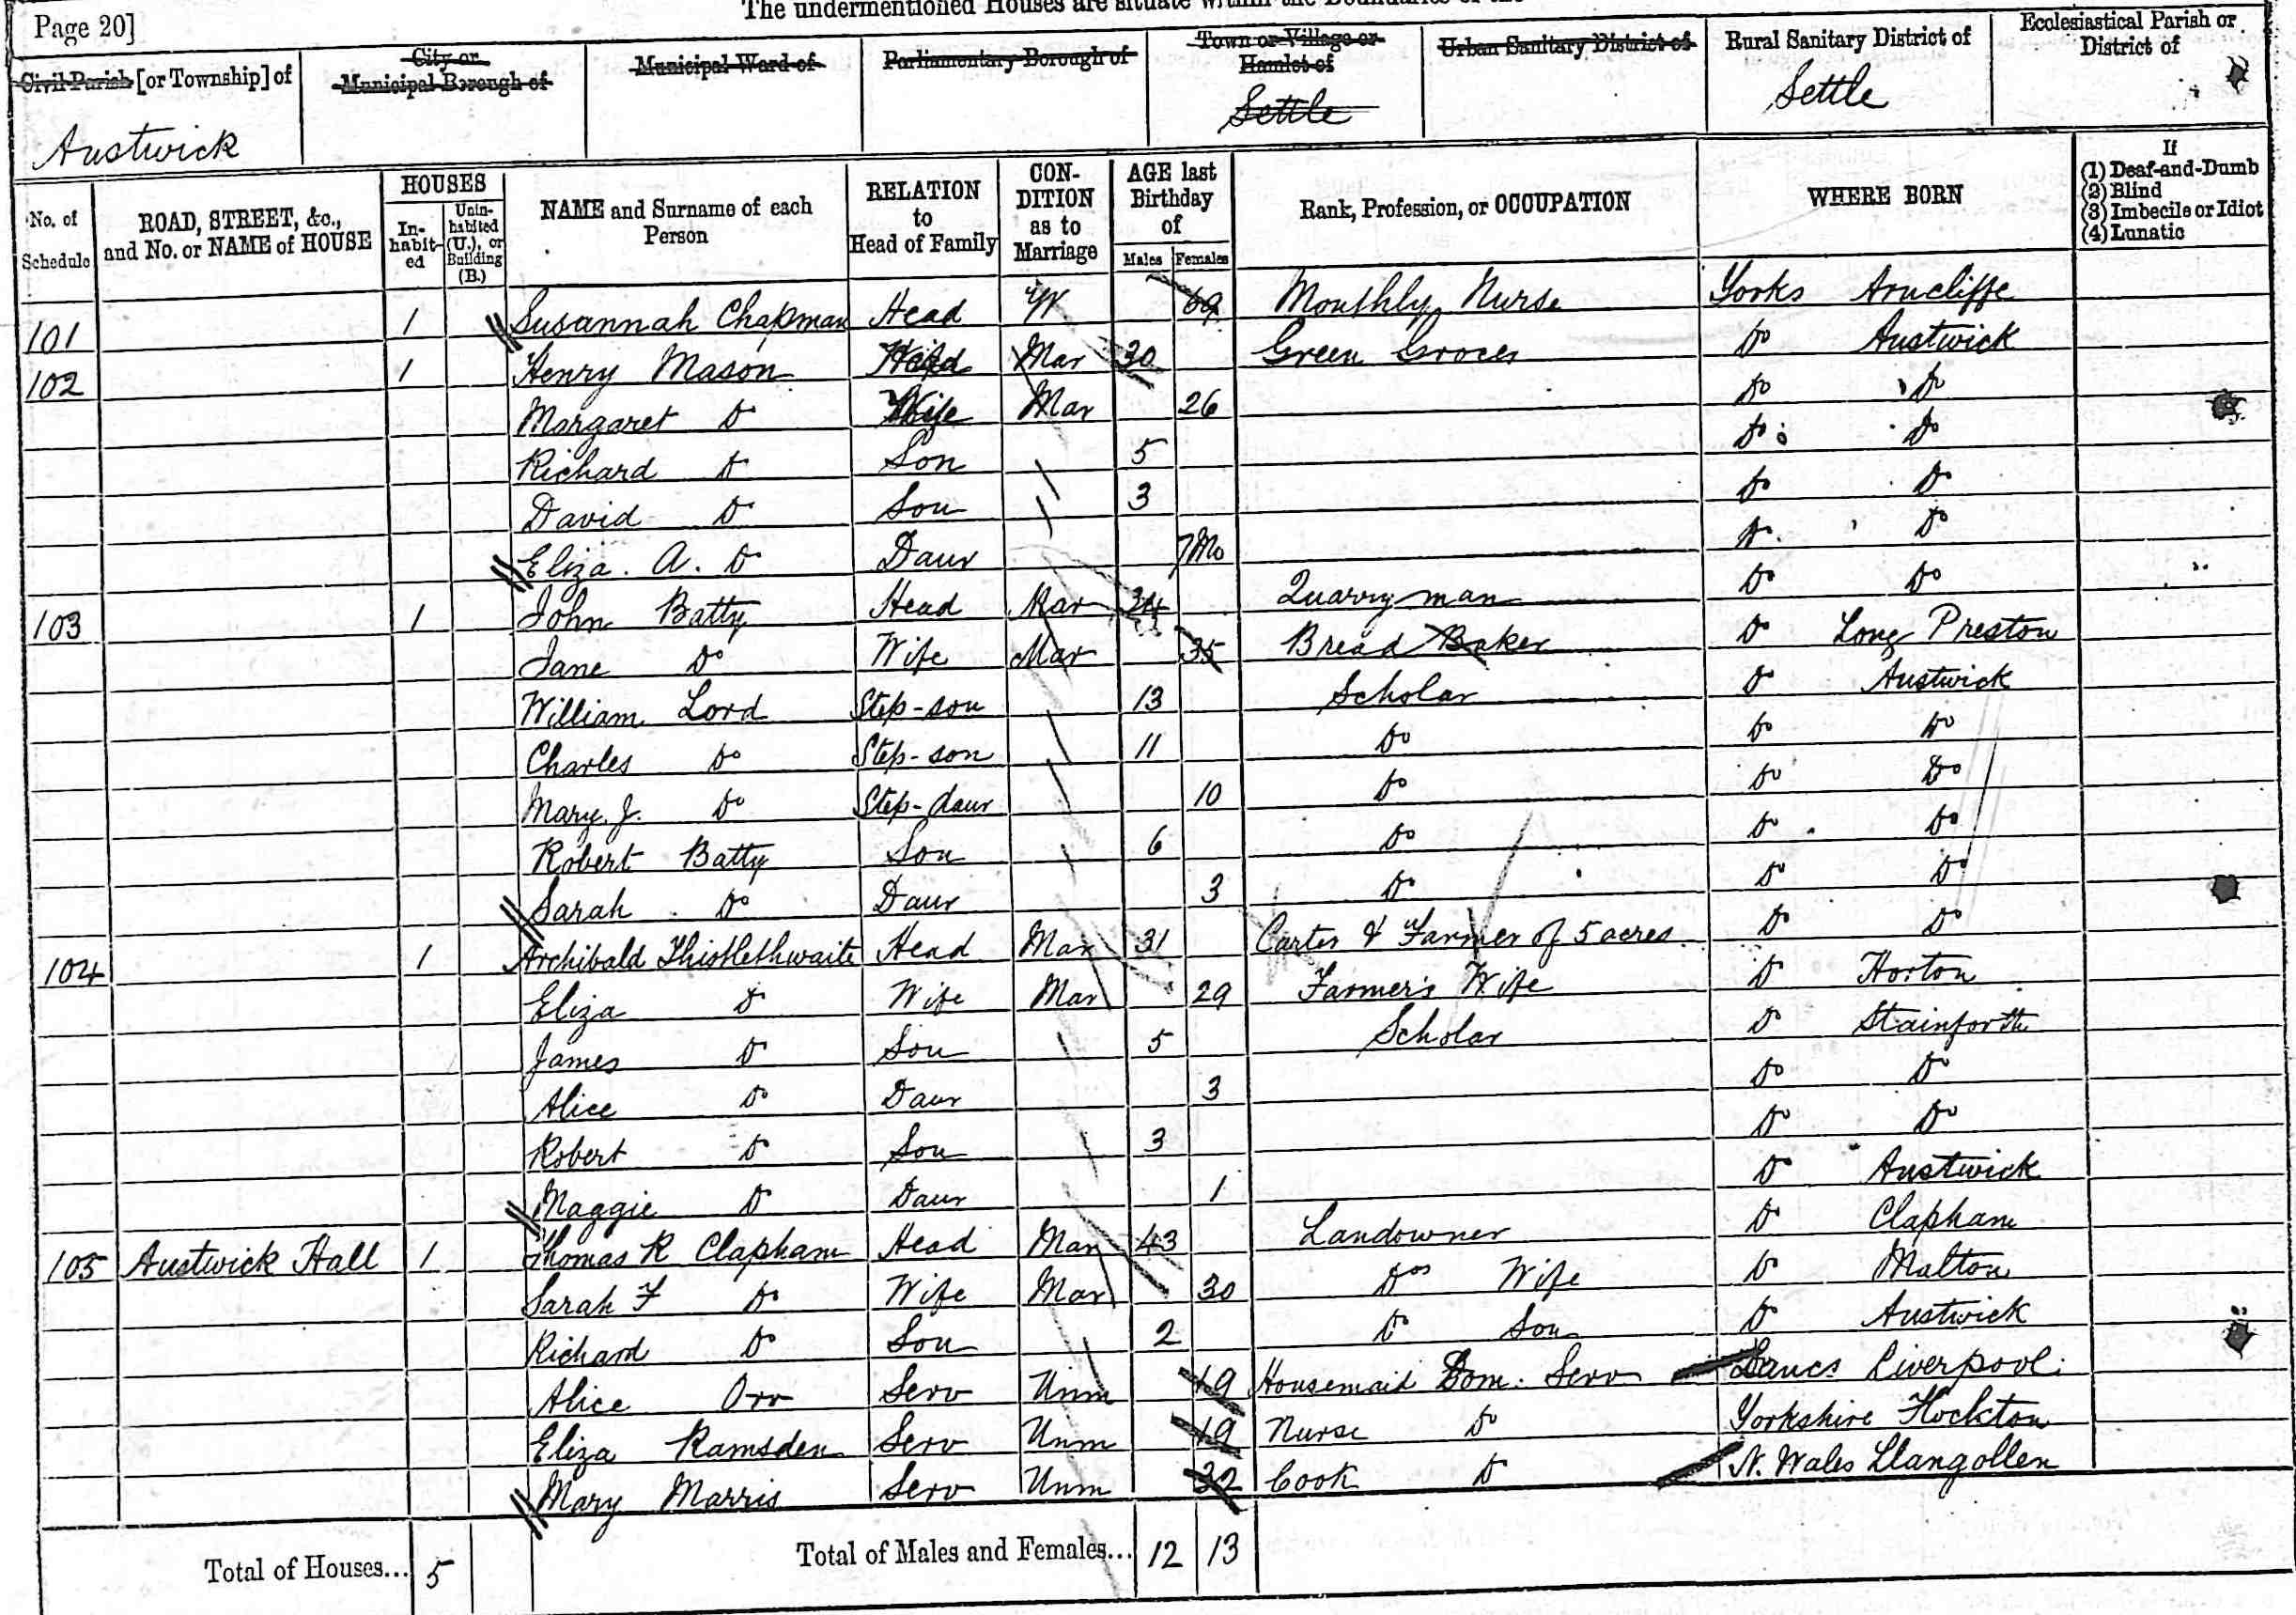 The undermentioned Houses are situate within the Boundaries of the
Page 20]
Civil Parish [or Township] of
City or Municipal Borough of
Municipal Ward of
Parliamentary Borough of
Town or Village or Hamlet of
Urban Sanitary District of
Rural Sanitary District of
Ecclesiastical Parish or District of
Austwick
Settle
Settle
No. of Schedule
ROAD, STREET, &c., and No. or NAME of HOUSE
HOUSES
In-habit-ed
Unin-habited (U.), or Building (B.)
NAME and Surname of each Person
RELATION to Head of Family
CON-DITION as to Marriage
AGE last Birthday of
Males Females
Rank, Profession, or OCCUPATION
WHERE BORN
If
(1) Deaf-and-Dumb
(2) Blind
(3) Imbecile or Idiot
(4) Lunatic
101 1 Susannah Chapman Head W 69 Monthly Nurse Yorks Arncliffe
102 1 Henry Mason Head Mar 30 Green Grocer Do Austwick
Margaret Do Wife Mar 26 Do Do
Richard Do Son 5 Do Do
David Do Son 3 Do Do
Eliza. A. Do Daur 7Mo Do Do
103 1 John Batty Head Mar 34 Quarryman Do Do
Jane Do Wife Mar 35 Bread Baker Do Long Preston
William Lord Step-son 13 Scholar Do Austwick
Charles Do Step-son 11 Do Do Do
Mary. J. Do Step-daur 10 Do Do Do
Robert Batty Son 6 Do Do Do
Sarah Do Daur 3 Do Do Do
104 1 Archibald Thistlethwaite Head Mar 31 Carter & Farmer of 5 acres Do Do
Eliza Do Wife Mar 29 Farmer's Wife Do Horton
James Do Son 5 Scholar Do Stainforth
Alice Do Daur 3 Do Do
Robert Do Son 3 Do Do
Maggie Do Daur 1 Do Austwick
105 Austwick Hall 1 Thomas R Clapham Head Mar 43 Landowner Do Clapham
Sarah F Do Wife Mar 30 Dos Wife Do Malton
Richard Do Son 2 Do Son Do Austwick
Alice Orr Serv Unm 19 Housemaid Dom. Serv Lancs Liverpool
Eliza Ramsden Serv Unm 19 Nurse Do Yorkshire Flockton
Mary Marris Serv Unm 32 Cook Do N. Wales Llangollen
Total of Houses... 5 Total of Males and Females... 12 13